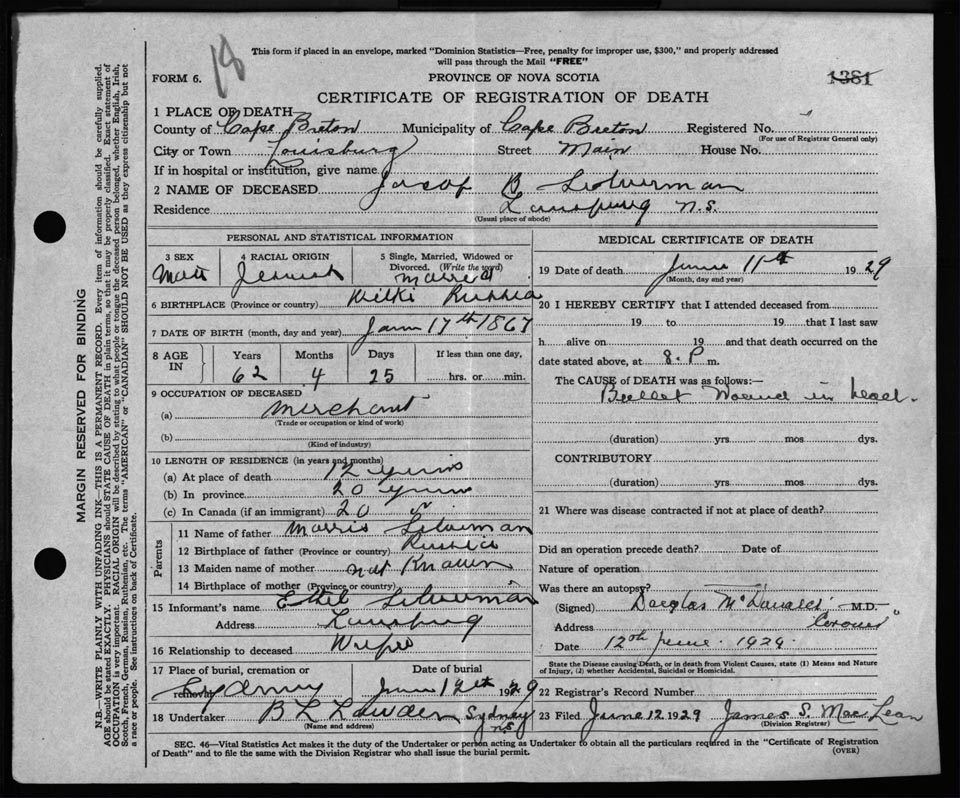 18
This form if placed in an envelope, marked "Dominion Statistics—Free, penalty for improper use, $300," and properly addressed
will pass through the Mail "FREE"
FORM 6.
PROVINCE OF NOVA SCOTIA
1381
CERTIFICATE OF REGISTRATION OF DEATH
1 PLACE OF DEATH
County of Cape Breton Municipality of Cape Breton Registered No.
(For use of Registrar General only)
City or Town Louisburg Street Main House No.
If in hospital or institution, give name
2 NAME OF DECEASED Jacob B Silverman
Residence Louisburg N.S.
(Usual place of abode)
PERSONAL AND STATISTICAL INFORMATION
3 SEX 4 RACIAL ORIGIN 5 Single, Married, Widowed or
Divorced. (Write the word)
Male Jewish Married
6 BIRTHPLACE (Province or country) Wilki Russia
7 DATE OF BIRTH (month, day and year) Jan 17th 1867
8 AGE IN Years Months Days If less than one day,
62 4 25 hrs. or min.
9 OCCUPATION OF DECEASED
(a) Merchant
(Trade or occupation or kind of work)
(b)
(Kind of industry)
10 LENGTH OF RESIDENCE (in years and months)
(a) At place of death 12 years
(b) In province 20 years
(c) In Canada (if an immigrant) 20 "
Parents
11 Name of father Morris Silverman
12 Birthplace of father (Province or country) Russia
13 Maiden name of mother not Known
14 Birthplace of mother (Province or country) "
15 Informant's name Ethel Silverman
Address Louisburg
16 Relationship to deceased Wife
17 Place of burial, cremation or Date of burial
removal Sydney June 12th 1929
18 Undertaker B L Sydney
N.S.
(Name and address)
MEDICAL CERTIFICATE OF DEATH
19 Date of death June 11th 1929
(Month, day and year)
20 I HEREBY CERTIFY that I attended deceased from
19 to 19 that I last saw
h alive on 19 and that death occurred on the
date stated above, at 8. P m.
The CAUSE of DEATH was as follows:—
Bullet Wound in head.
(duration) yrs. mos. dys.
CONTRIBUTORY
(duration) yrs. mos. dys.
21 Where was disease contracted if not at place of death?
Did an operation precede death? Date of
Nature of operation
Was there an autopsy?
(Signed) Douglas McDonald M.D.
Address Coroner
Date 12th June. 1929.
State the Disease causing Death, or in death from Violent Causes, state (1) Means and Nature
of Injury, (2) whether Accidental, Suicidal or Homicidal.
22 Registrar's Record Number
23 Filed June 12 1929 James S. MacLean
(Division Registrar)
SEC. 46—Vital Statistics Act makes it the duty of the Undertaker or person acting as Undertaker to obtain all the particulars required in the "Certificate of Registration
of Death" and to file the same with the Division Registrar who shall issue the burial permit.
(OVER)
MARGIN RESERVED FOR BINDING
N.B.—WRITE PLAINLY WITH UNFADING INK—THIS IS A PERMANENT RECORD. Every item of information should be carefully supplied.
AGE should be stated EXACTLY. PHYSICIANS should STATE CAUSE OF DEATH in plain terms, so that it may be properly classified. Exact statement of
OCCUPATION is very important. RACIAL ORIGIN will be described by stating to what people or tongue the deceased person belonged, whether English, Irish,
Scotch, French, German, Russian, Ruthenian, etc. The terms "AMERICAN" or "CANADIAN" SHOULD NOT BE USED as they express citizenship but not
a race or people. See instructions on back of Certificate.